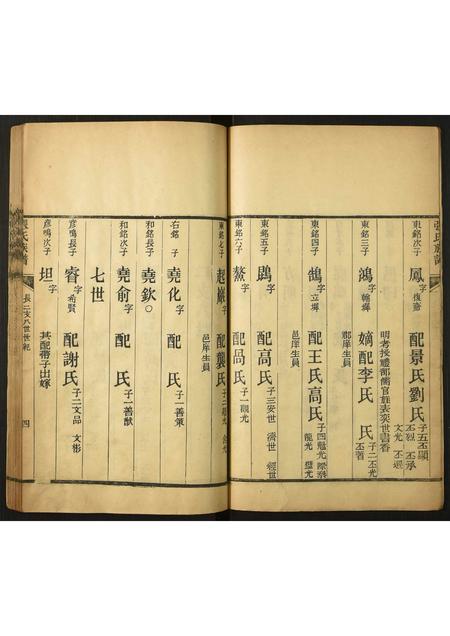 張氏族譜
東銘次子 鳳 字復嘉 配景氏劉氏 子五丕顯 丕烈 丕承 文光 丕遐
明考授禮部儒官旌表奕世書香
東銘三子 鴻 字翰墀 嫡配李氏 氏 子二丕光 丕著
郡庠生員
東銘四子 鵠 字立墀 配王氏高氏 子四 龍光
邑庠生員
東銘五子 鵾 字 配高氏 子三安世 濟世 經世
東銘六子 鰲 字 配咼氏 子一觀光
東銘七子 起巖 字 配龔氏
邑庠生員
右銘 子 堯化 字 配 氏 子一善策
和銘長子 堯欽
和銘次子 堯俞 字 配 氏 子一善猷
七世
彥鳴長子 睿 字希賢 配謝氏 子二文品 文彬
彥鳴次子 坦 字 其配帶子出嫁
長二支八世世紀
四